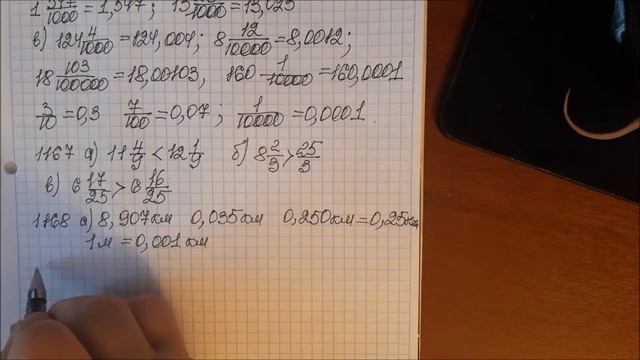 1 547/1000 = 1,547; 15 /1000 = 15,025
в) 124 4/1000 = 124,004; 8 12/10000 = 8,0012;
18 103/100000 = 18,00103, 160 1/10000 = 160,0001
3/10 = 0,3 7/100 = 0,07; 1/10000 = 0,0001.
1167 а) 11 4/9 < 12 1/9 б) 8 2/3 > 25/3
в) 6 17/25 > 6 16/25
1168 а) 8,907км 0,035км 0,250км = 0,25км
1м = 0,001км